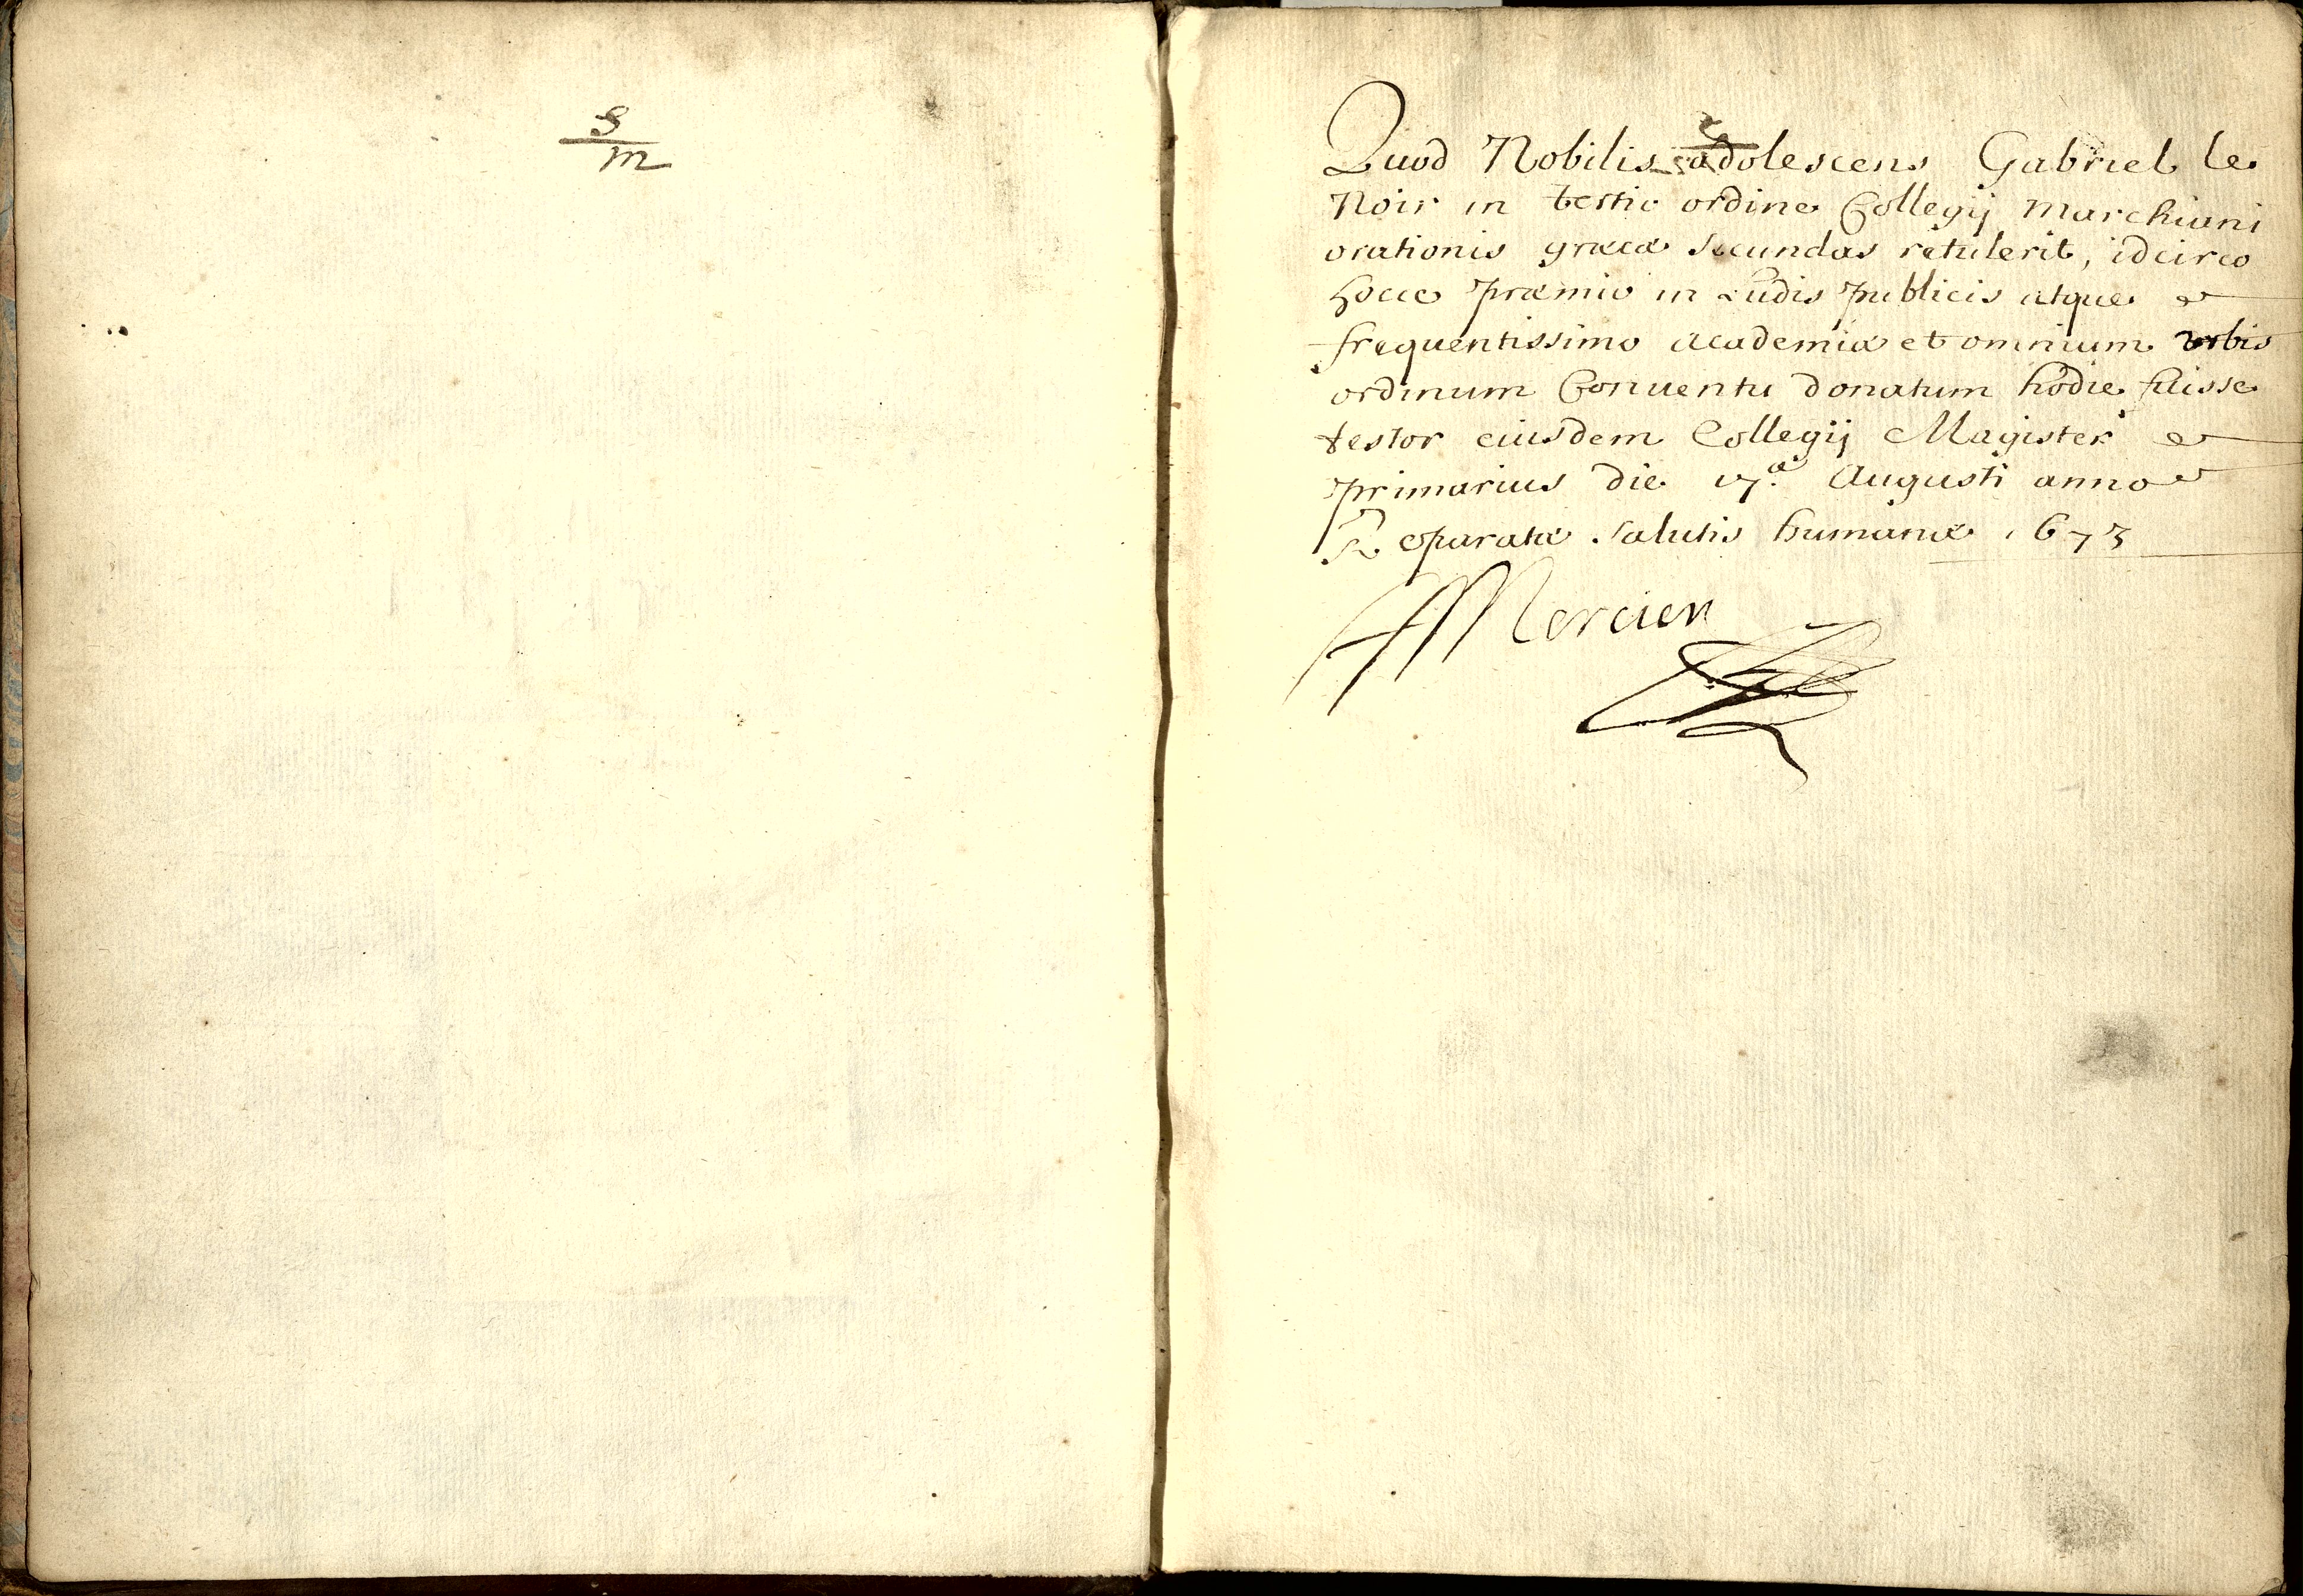 S
m
Quod Nobilis adolescens Gabriel le
Noir in tertio ordine Collegij Marchiani
orationis græcæ secundas retulerit, idcirco
hocce præmio in Ludis publicis atque
frequentissimo academiæ et omnium vrbis
ordinum Conuentu donatum hodie fuisse
testor eiusdem Collegij Magister
primarius die 17ª. Augusti anno
Reparatæ Salutis humanæ 1673
Mercier